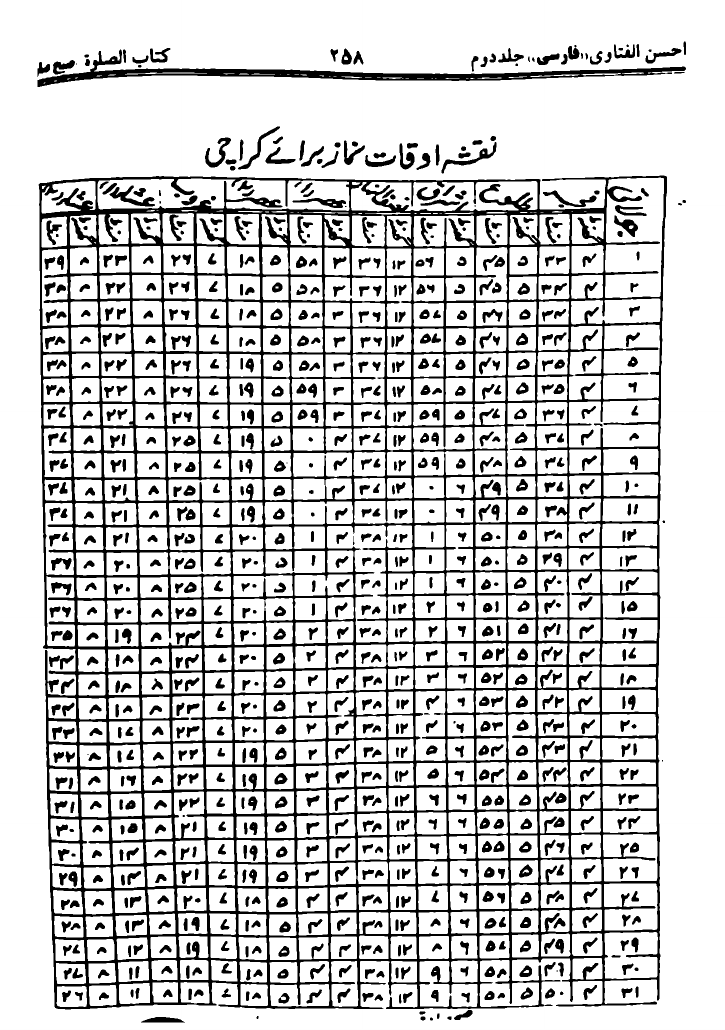 احسن الفتاوی «فارسی» جلد دوم ۲۵۸ کتاب الصلوة
نقشہ اوقات نماز برائے کراچی
جولائی فجر طلوع اشراق نصف النہار عصر عصر غروب عشاء عشاء
۱ ۴ ۳۳ ۵ ۴۵ ۵ ۵۶ ۱۲ ۳۶ ۳ ۵۸ ۵ ۱۸ ۷ ۲۶ ۸ ۲۳ ۸ ۳۹
۲ ۴ ۳۴ ۵ ۴۵ ۵ ۵۶ ۱۲ ۳۶ ۳ ۵۸ ۵ ۱۸ ۷ ۲۶ ۸ ۲۲ ۸ ۳۸
۳ ۴ ۳۴ ۵ ۴۶ ۵ ۵۷ ۱۲ ۳۶ ۳ ۵۸ ۵ ۱۸ ۷ ۲۶ ۸ ۲۲ ۸ ۳۸
۴ ۴ ۳۴ ۵ ۴۶ ۵ ۵۷ ۱۲ ۳۶ ۳ ۵۸ ۵ ۱۸ ۷ ۲۶ ۸ ۲۲ ۸ ۳۸
۵ ۴ ۳۵ ۵ ۴۶ ۵ ۵۷ ۱۲ ۳۶ ۳ ۵۸ ۵ ۱۹ ۷ ۲۶ ۸ ۲۲ ۸ ۳۸
۶ ۴ ۳۵ ۵ ۴۷ ۵ ۵۸ ۱۲ ۳۷ ۳ ۵۹ ۵ ۱۹ ۷ ۲۶ ۸ ۲۲ ۸ ۳۸
۷ ۴ ۳۶ ۵ ۴۷ ۵ ۵۹ ۱۲ ۳۷ ۳ ۵۹ ۵ ۱۹ ۷ ۲۶ ۸ ۲۲ ۸ ۳۷
۸ ۴ ۳۷ ۵ ۴۸ ۵ ۵۹ ۱۲ ۳۷ ۴ ۰ ۵ ۱۹ ۷ ۲۵ ۸ ۲۱ ۸ ۳۷
۹ ۴ ۳۷ ۵ ۴۸ ۵ ۵۹ ۱۲ ۳۷ ۴ ۰ ۵ ۱۹ ۷ ۲۵ ۸ ۲۱ ۸ ۳۷
۱۰ ۴ ۳۷ ۵ ۴۹ ۶ ۰ ۱۲ ۳۷ ۴ ۰ ۵ ۱۹ ۷ ۲۵ ۸ ۲۱ ۸ ۳۷
۱۱ ۴ ۳۸ ۵ ۴۹ ۶ ۰ ۱۲ ۳۷ ۴ ۰ ۵ ۱۹ ۷ ۲۵ ۸ ۲۱ ۸ ۳۷
۱۲ ۴ ۳۸ ۵ ۵۰ ۶ ۱ ۱۲ ۳۸ ۴ ۱ ۵ ۲۰ ۷ ۲۵ ۸ ۲۱ ۸ ۳۷
۱۳ ۴ ۳۹ ۵ ۵۰ ۶ ۱ ۱۲ ۳۸ ۴ ۱ ۵ ۲۰ ۷ ۲۵ ۸ ۲۰ ۸ ۳۶
۱۴ ۴ ۴۰ ۵ ۵۰ ۶ ۱ ۱۲ ۳۸ ۴ ۱ ۵ ۲۰ ۷ ۲۵ ۸ ۲۰ ۸ ۳۶
۱۵ ۴ ۴۰ ۵ ۵۱ ۶ ۲ ۱۲ ۳۸ ۴ ۱ ۵ ۲۰ ۷ ۲۵ ۸ ۲۰ ۸ ۳۶
۱۶ ۴ ۴۱ ۵ ۵۱ ۶ ۲ ۱۲ ۳۸ ۴ ۲ ۵ ۲۰ ۷ ۲۴ ۸ ۱۹ ۸ ۳۵
۱۷ ۴ ۴۲ ۵ ۵۲ ۶ ۳ ۱۲ ۳۸ ۴ ۲ ۵ ۲۰ ۷ ۲۴ ۸ ۱۸ ۸ ۳۴
۱۸ ۴ ۴۲ ۵ ۵۲ ۶ ۳ ۱۲ ۳۸ ۴ ۲ ۵ ۲۰ ۷ ۲۴ ۸ ۱۸ ۸ ۳۴
۱۹ ۴ ۴۲ ۵ ۵۳ ۶ ۴ ۱۲ ۳۸ ۴ ۲ ۵ ۲۰ ۷ ۲۳ ۸ ۱۸ ۸ ۳۴
۲۰ ۴ ۴۳ ۵ ۵۳ ۶ ۴ ۱۲ ۳۸ ۴ ۲ ۵ ۲۰ ۷ ۲۳ ۸ ۱۷ ۸ ۳۳
۲۱ ۴ ۴۳ ۵ ۵۴ ۶ ۵ ۱۲ ۳۸ ۴ ۲ ۵ ۱۹ ۷ ۲۲ ۸ ۱۷ ۸ ۳۲
۲۲ ۴ ۴۴ ۵ ۵۴ ۶ ۵ ۱۲ ۳۸ ۴ ۳ ۵ ۱۹ ۷ ۲۲ ۸ ۱۶ ۸ ۳۱
۲۳ ۴ ۴۵ ۵ ۵۵ ۶ ۶ ۱۲ ۳۸ ۴ ۳ ۵ ۱۹ ۷ ۲۲ ۸ ۱۵ ۸ ۳۱
۲۴ ۴ ۴۵ ۵ ۵۵ ۶ ۶ ۱۲ ۳۸ ۴ ۳ ۵ ۱۹ ۷ ۲۱ ۸ ۱۵ ۸ ۳۰
۲۵ ۴ ۴۶ ۵ ۵۵ ۶ ۶ ۱۲ ۳۸ ۴ ۳ ۵ ۱۹ ۷ ۲۱ ۸ ۱۴ ۸ ۳۰
۲۶ ۴ ۴۷ ۵ ۵۶ ۶ ۷ ۱۲ ۳۸ ۴ ۳ ۵ ۱۹ ۷ ۲۱ ۸ ۱۴ ۸ ۲۹
۲۷ ۴ ۴۸ ۵ ۵۶ ۶ ۷ ۱۲ ۳۸ ۴ ۴ ۵ ۱۸ ۷ ۲۰ ۸ ۱۳ ۸ ۲۸
۲۸ ۴ ۴۸ ۵ ۵۷ ۶ ۸ ۱۲ ۳۸ ۴ ۴ ۵ ۱۸ ۷ ۱۹ ۸ ۱۳ ۸ ۲۸
۲۹ ۴ ۴۹ ۵ ۵۷ ۶ ۸ ۱۲ ۳۸ ۴ ۴ ۵ ۱۸ ۷ ۱۹ ۸ ۱۲ ۸ ۲۷
۳۰ ۴ ۴۹ ۵ ۵۸ ۶ ۹ ۱۲ ۳۸ ۴ ۴ ۵ ۱۸ ۷ ۱۸ ۸ ۱۱ ۸ ۲۷
۳۱ ۴ ۵۰ ۵ ۵۸ ۶ ۹ ۱۲ ۳۸ ۴ ۴ ۵ ۱۸ ۷ ۱۸ ۸ ۱۱ ۸ ۲۶